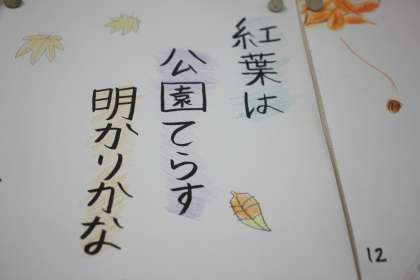 紅葉は
公園てらす
明かりかな
12